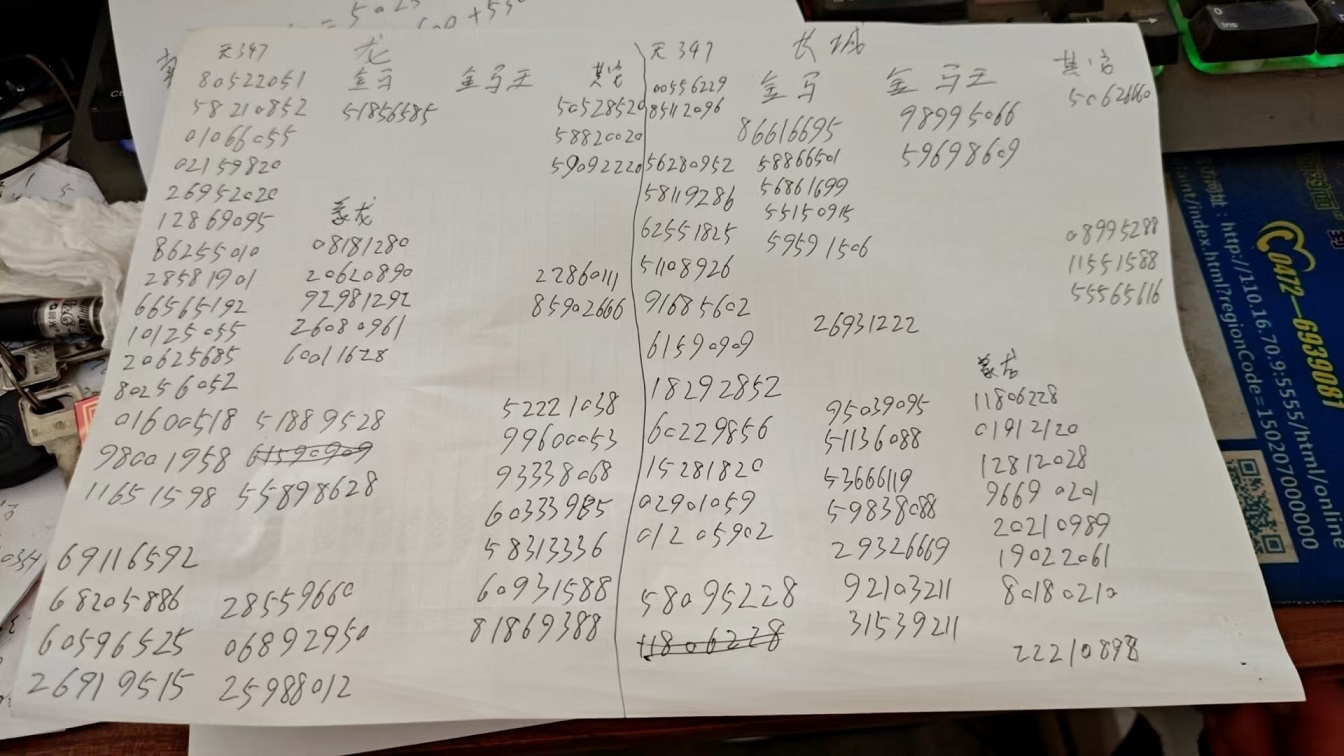 天347 龙
金马 金马天 其它
80522051
58210852 51856585 50528520
01066055 58820020
02159820 59092220
26952020
12869095 蒙龙
86255010 08181280
28581901 20620890 22860111
66565192 92981292 85902666
10125055 26080961
20625685 60011628
80256052
01600518 51889528 52221038
98001958 61590909 99600053
11651598 55898628 93338068
60333985
69116592 58313336
68205886 28559660 60931588
60596525 06892950 81869388
26919515 25988012
天347 长城
金马 金马天 其它
00556229 50626660
85112096 98995066
86616695 59698609
56280952 58866501
58119286 56861699
55150915
62551825 59591506 08995288
51108926 11551588
91685602 55565616
26931222
61590909
蒙古
18292852 95039095 11806228
60229856 51136088 01912120
15281820 53666119 12812028
02901059 59838088 96690201
01205902 29326669 20210989
19022061
58095228 92103211 80180210
11806228 31539211
22210898
0472-6939081
http://110.16.70.9:5555/html/online
tant/index.html?regionCode=150207000000
0
Ins